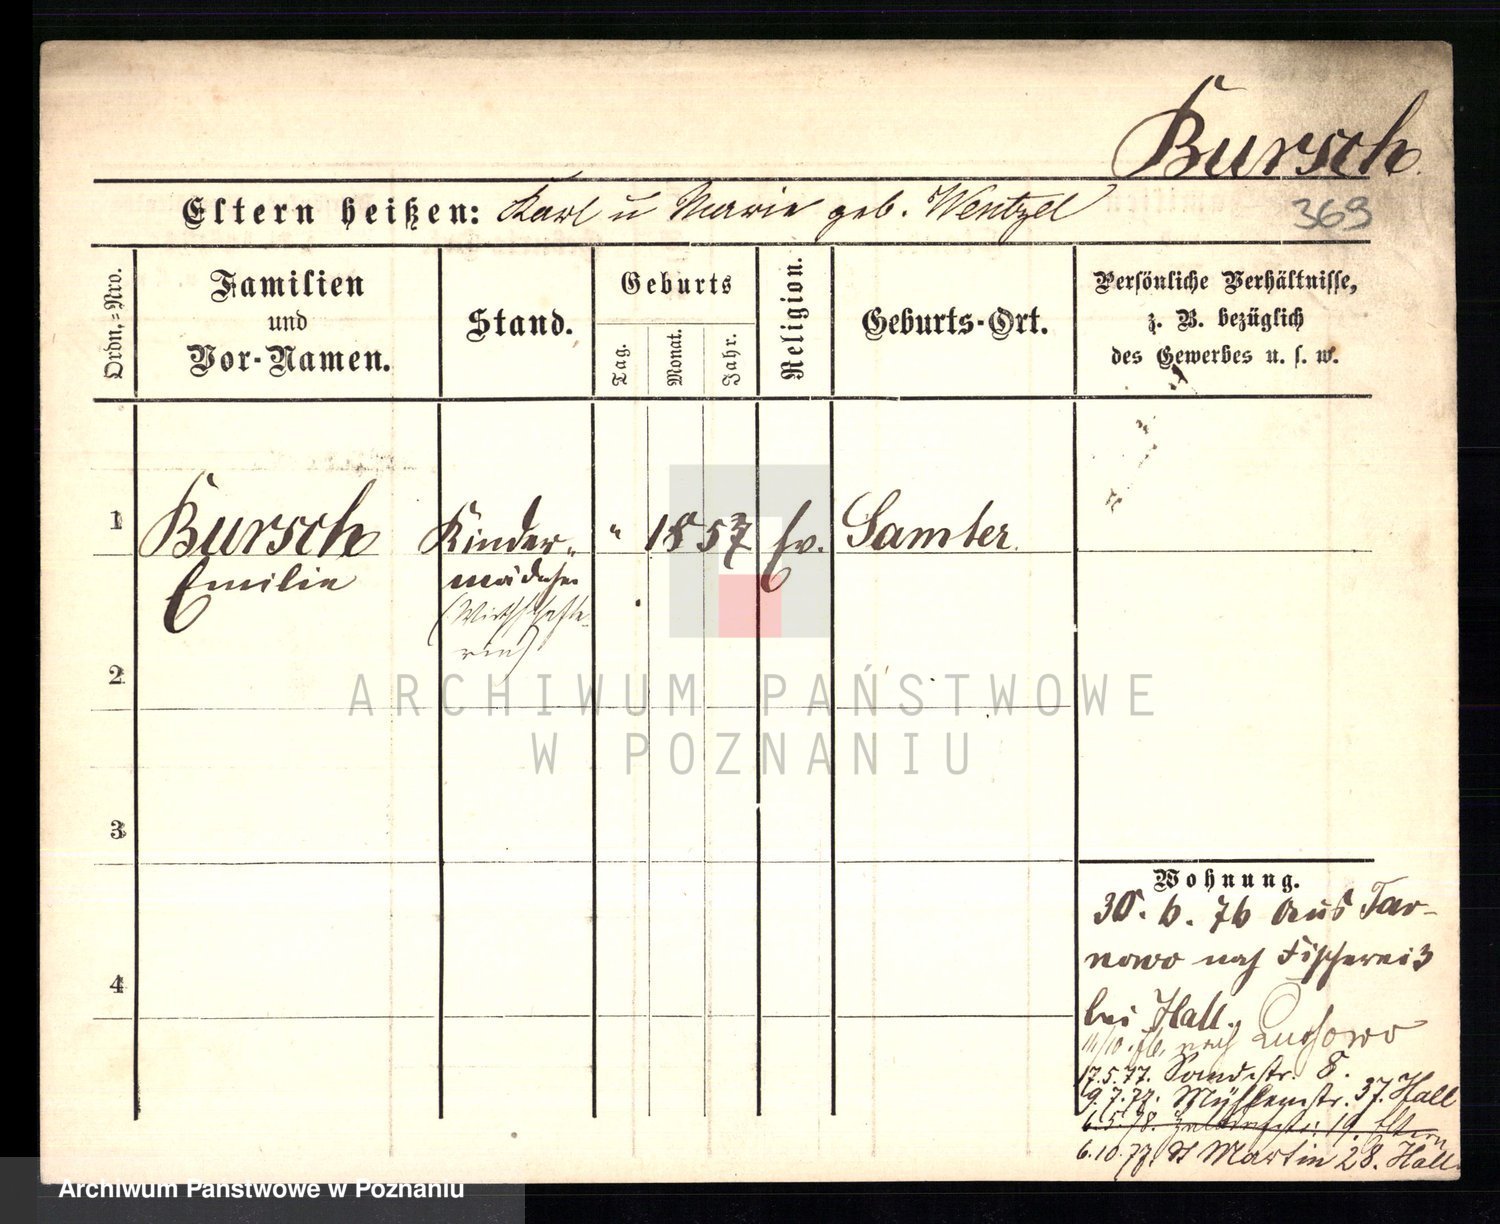 Bursch.
Eltern heißen: Karl u Marie geb. Wentzel
369
Ordn.=Nro.
Familien
und
Vor-Namen.
Stand.
Geburts
Tag.
Monat.
Jahr.
Religion.
Geburts-Ort.
Persönliche Verhältnisse,
z. B. bezüglich
des Gewerbes u. s. w.
1
Bursch
Emilie
Kinder-
mädchen
(Wirthschafte-
rin)
"
1857
Ev.
Samter.
2
3
4
Wohnung.
30. 6. 76 aus Tar-
nowo nach Fischerei 3
bei Hall.
11/10. 76. nach Lussowo
17.5.77. Sandstr. 8.
9.7.77. Mühlenstr. 37. Hall
6.5.78. 19. Eltern
6.10.77. St Martin 28. Hall.
ARCHIWUM PAŃSTWOWE
W POZNANIU
Archiwum Państwowe w Poznaniu